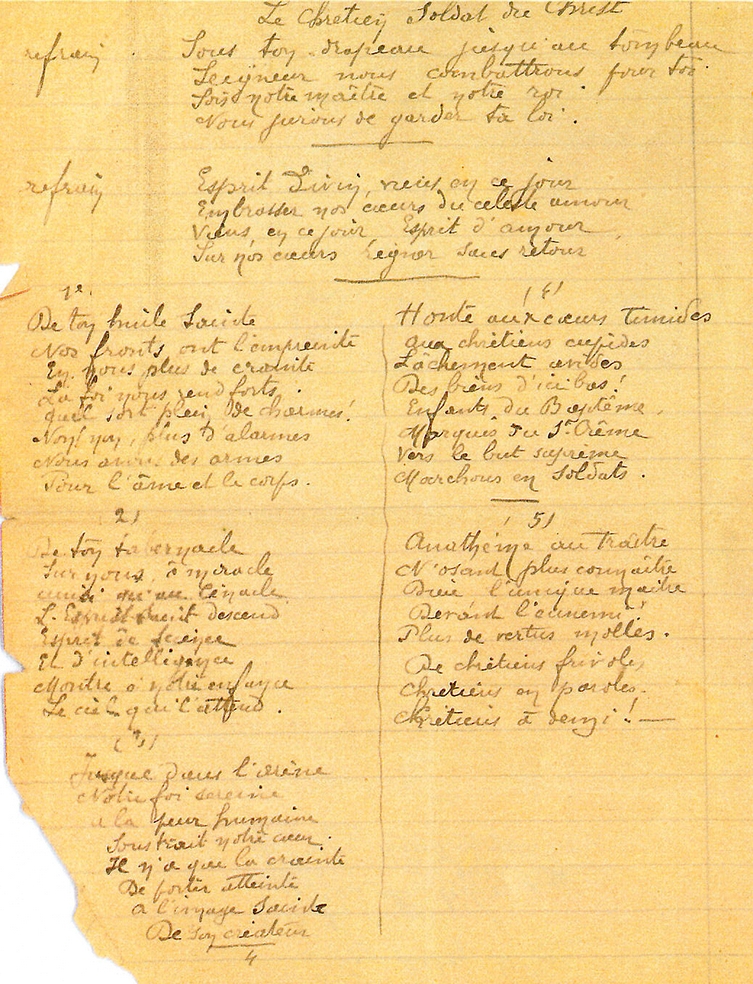 Le Chrétien Soldat du Christ
refrain
Sous ton drapeau jusqu'au tombeau
Seigneur nous combattrons pour toi.
Sois notre maître et notre roi.
Nous jurons de garder ta loi.
refrain
Esprit Divin, viens en ce jour
Embrasser nos cœurs du céleste amour
Viens en ce jour Esprit d'amour
Sur nos cœurs régner sans retour
1º
De ton huile Sainte
Nos fronts ont l'empreinte
En nous plus de crainte
La foi nous rend forts.
quel sort plein de charmes!
Non! non, plus d'alarmes
Nous avons des armes
Pour l'âme et le corps.
2)
De ton tabernacle
Sur nous, ô miracle
ainsi qu'au Cénacle
L'Esprit Saint descend
Esprit de Science
Et d'intelligence
Montre à notre enfance
Le ciel qui l'attend.
(3)
Jusque dans l'arène
Notre foi sereine
a la peur humaine
Soustrait notre cœur.
Il n'a que la crainte
De porter atteinte
a l'image Sainte
De son créateur
4
(4)
Honte aux cœurs timides
aux chrétiens cupides
Lâchement avides
Des biens d'ici bas!
Enfants du Baptême.
Marqués du St. Crême
Vers le but suprême
Marchons en Soldats.
(5)
Anathème au traître
N'osant plus connaître
Dieu l'unique maître
Devant l'ennemi!
Plus de vertus molles.
De chrétiens frivoles
Chrétiens en paroles.
Chrétiens à demi! —